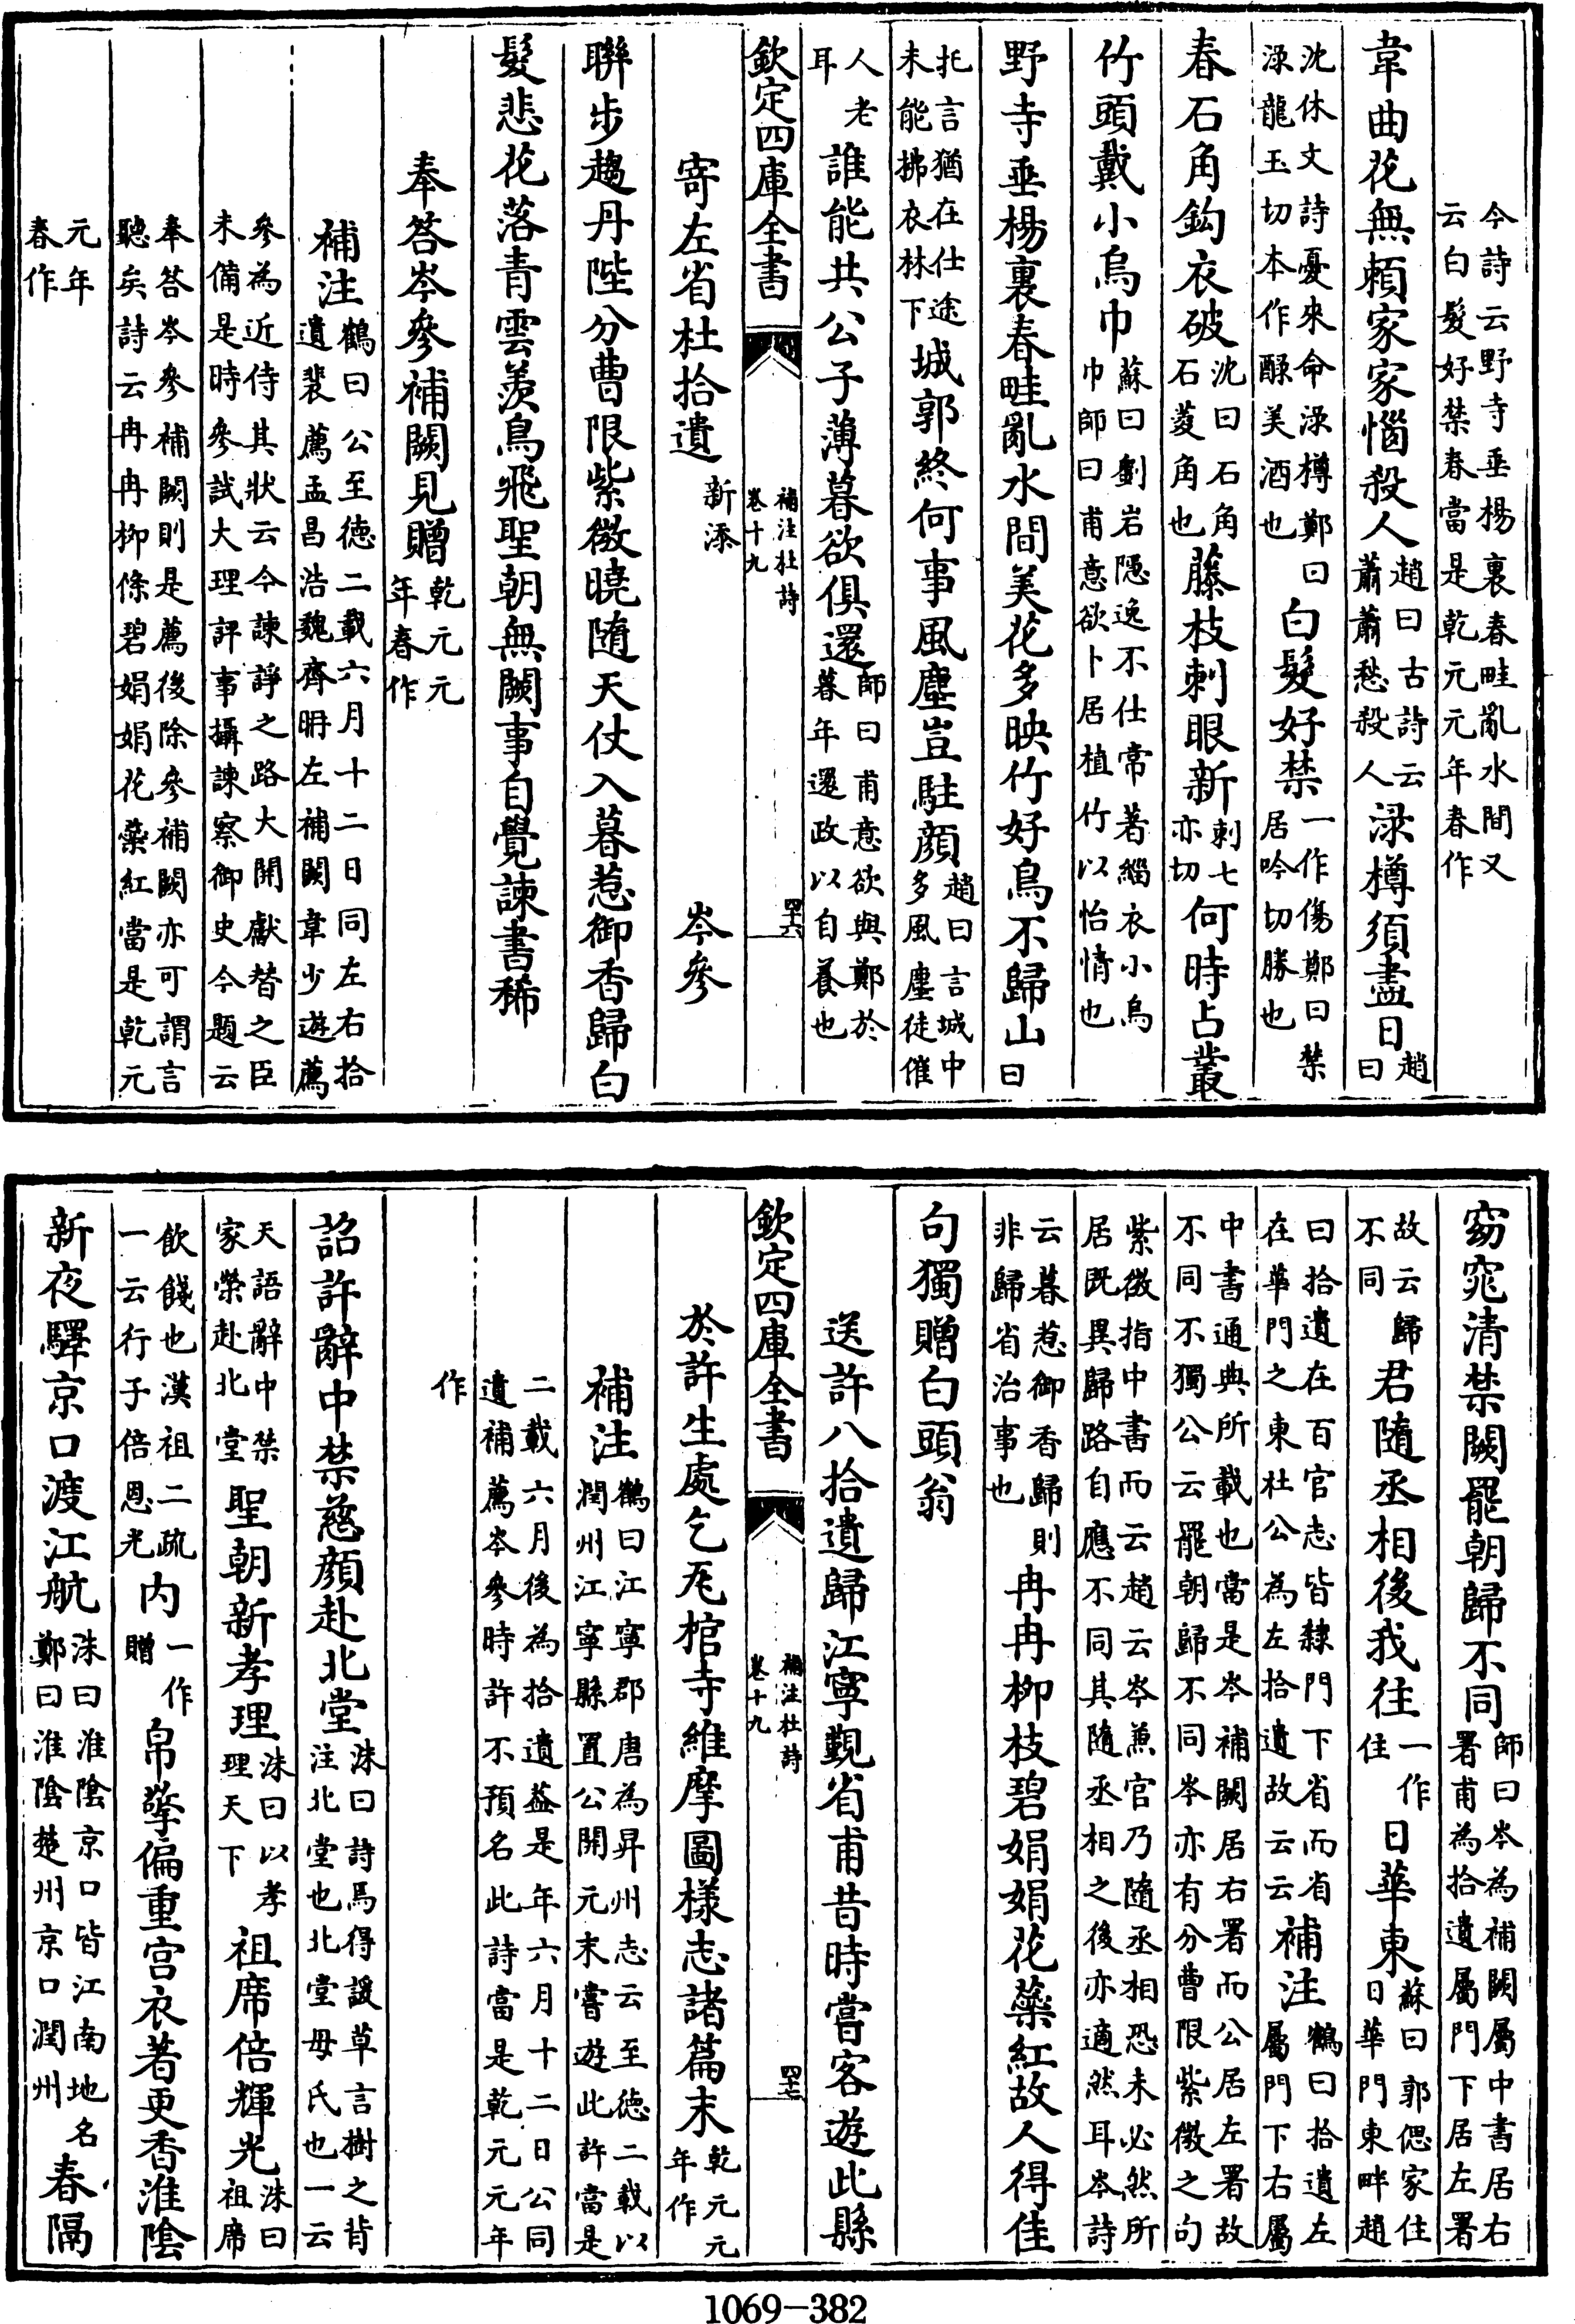 今詩云野寺垂楊裏春畦亂水間又
云白髮好禁春當是乾元元年春作
韋曲花無賴家家惱殺人趙曰古詩云蕭蕭愁殺人淥樽須盡日趙曰
沈休文詩憂來命淥樽鄭曰淥龍玉切本作醁美酒也白髮好禁一作傷鄭曰禁居吟切勝也
春石角鈎衣破沈曰石角石菱角也藤枝刺眼新刺七亦切何時占叢
竹頭戴小烏巾蘇曰劉岩隱逸不仕常著緇衣小烏巾師曰甫意欲卜居植竹以怡情也
野寺垂楊裏春畦亂水間美花多映竹好鳥不歸山曰
托言猶在仕途未能拂衣林下城郭終何事風塵豈駐顏趙曰言城中多風塵徒催
人老耳誰能共公子薄暮欲俱還師曰甫意欲與鄭於暮年還政以自養也
欽定四庫全書 補注杜詩 卷十九 四十六
寄左省杜拾遺 新添 岑參
聯步趨丹陛分曹限紫微曉隨天仗入暮惹御香歸白
髮悲花落青雲羨鳥飛聖朝無闕事自覺諫書稀
奉答岑參補闕見贈乾元元年春作
補注鶴曰公至德二載六月十二日同左右拾遺裴薦孟昌浩魏齊聃左補闕韋少遊薦
參為近侍其狀云今諫諍之路大開獻替之臣
未備是時參試大理評事攝諫察御史今題云
奉答岑參補闕則是薦後除參補闕亦可謂言
聽矣詩云冉冉柳條碧娟娟花蘂紅當是乾元
元年
春作
窈窕清禁闕罷朝歸不同師曰岑為補闕屬中書居右署甫為拾遺屬門下居左署
故云歸不同君隨丞相後我往一作住日華東蘇曰郭偲家住日華門東畔趙
曰拾遺在百官志皆隸門下省而省在華門之東杜公為左拾遺故云云補注鶴曰拾遺左屬門下右屬
中書通典所載也當是岑補闕居右署而公居左署故
不同不獨公云罷朝歸不同岑亦有分曹限紫微之句
紫微指中書而云趙云岑兼官乃隨丞相恐未必然所
居既異歸路自應不同其隨丞相之後亦適然耳岑詩
云暮惹御香歸則非歸省治事也冉冉柳枝碧娟娟花蘂紅故人得佳
句獨贈白頭翁
送許八拾遺歸江寧覲省甫昔時嘗客遊此縣
欽定四庫全書 補注杜詩 卷十九 四十七
於許生處乞瓦棺寺維摩圖樣志諸篇末乾元元年作
補注鶴曰江寧郡唐為昇州志云至德二載以潤州江寧縣置公開元末嘗遊此許當是
二載六月後為拾遺葢是年六月十二日公同
遺補薦岑參時許不預名此詩當是乾元元年
作
詔許辭中禁慈顏赴北堂洙曰詩焉得諼草言樹之背注北堂也北堂母氏也一云
天語辭中禁家榮赴北堂聖朝新孝理洙曰以孝理天下祖席倍輝光洙曰祖席
飲餞也漢祖二疏一云行子倍恩光內一作贈帛擎偏重宮衣著更香淮陰
新夜驛京口渡江航洙曰淮陰京口皆江南地名鄭曰淮陰楚州京口潤州春隔
1069-382